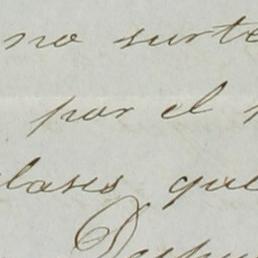 no surte
por el
clases que
Despu